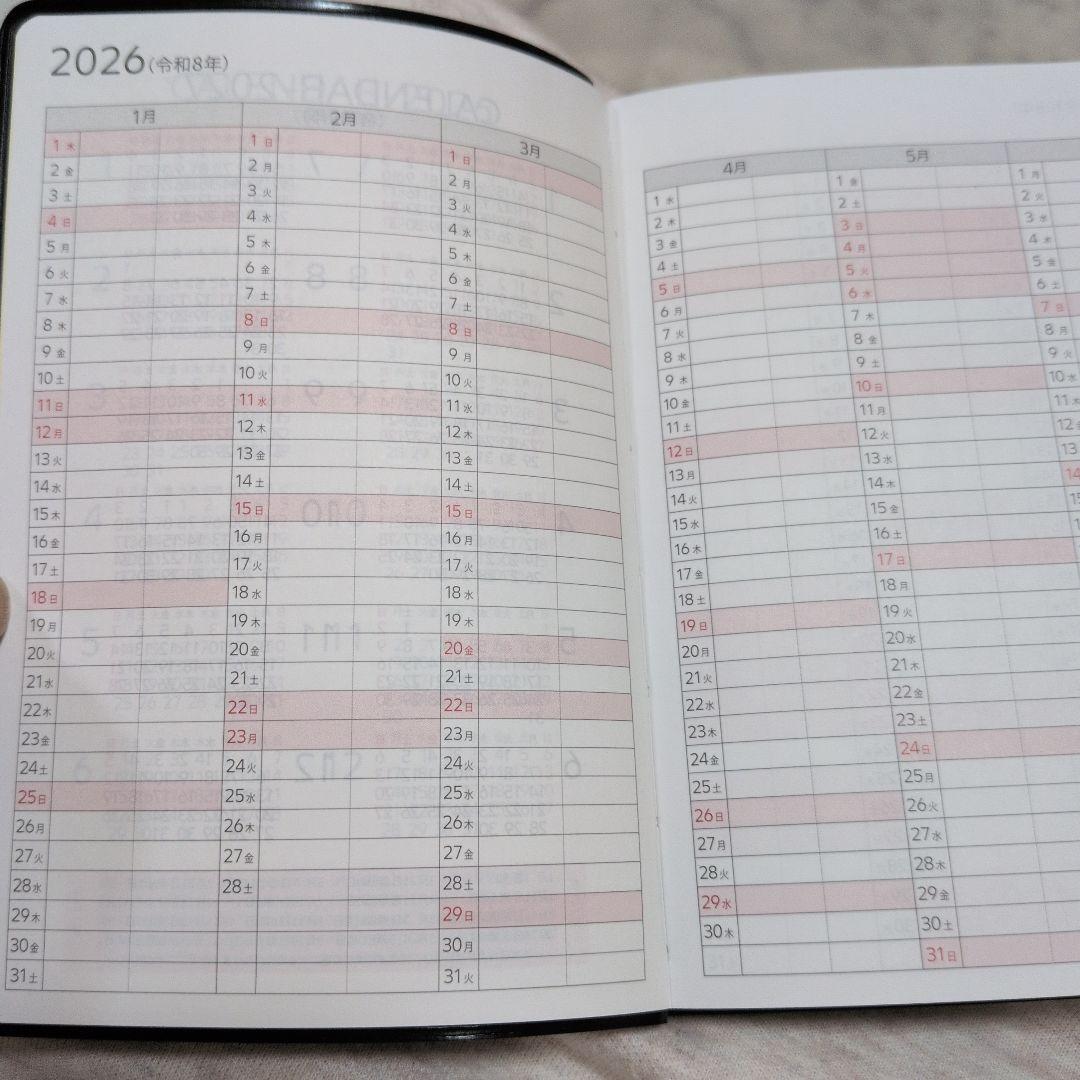 2026(令和8年)
1月
1木
2金
3土
4日
5月
6火
7水
8木
9金
10土
11日
12月
13火
14水
15木
16金
17土
18日
19月
20火
21水
22木
23金
24土
25日
26月
27火
28水
29木
30金
31土
2月
1日
2月
3火
4水
5木
6金
7土
8日
9月
10火
11水
12木
13金
14土
15日
16月
17火
18水
19木
20金
21土
22日
23月
24火
25水
26木
27金
28土
3月
1日
2月
3火
4水
5木
6金
7土
8日
9月
10火
11水
12木
13金
14土
15日
16月
17火
18水
19木
20金
21土
22日
23月
24火
25水
26木
27金
28土
29日
30月
31火
4月
1水
2木
3金
4土
5日
6月
7火
8水
9木
10金
11土
12日
13月
14火
15水
16木
17金
18土
19日
20月
21火
22水
23木
24金
25土
26日
27月
28火
29水
30木
5月
1金
2土
3日
4月
5火
6水
7木
8金
9土
10日
11月
12火
13水
14木
15金
16土
17日
18月
19火
20水
21木
22金
23土
24日
25月
26火
27水
28木
29金
30土
31日
1月
2火
3水
4木
5金
6土
7日
8月
9火
10水
11木
12金
13
14